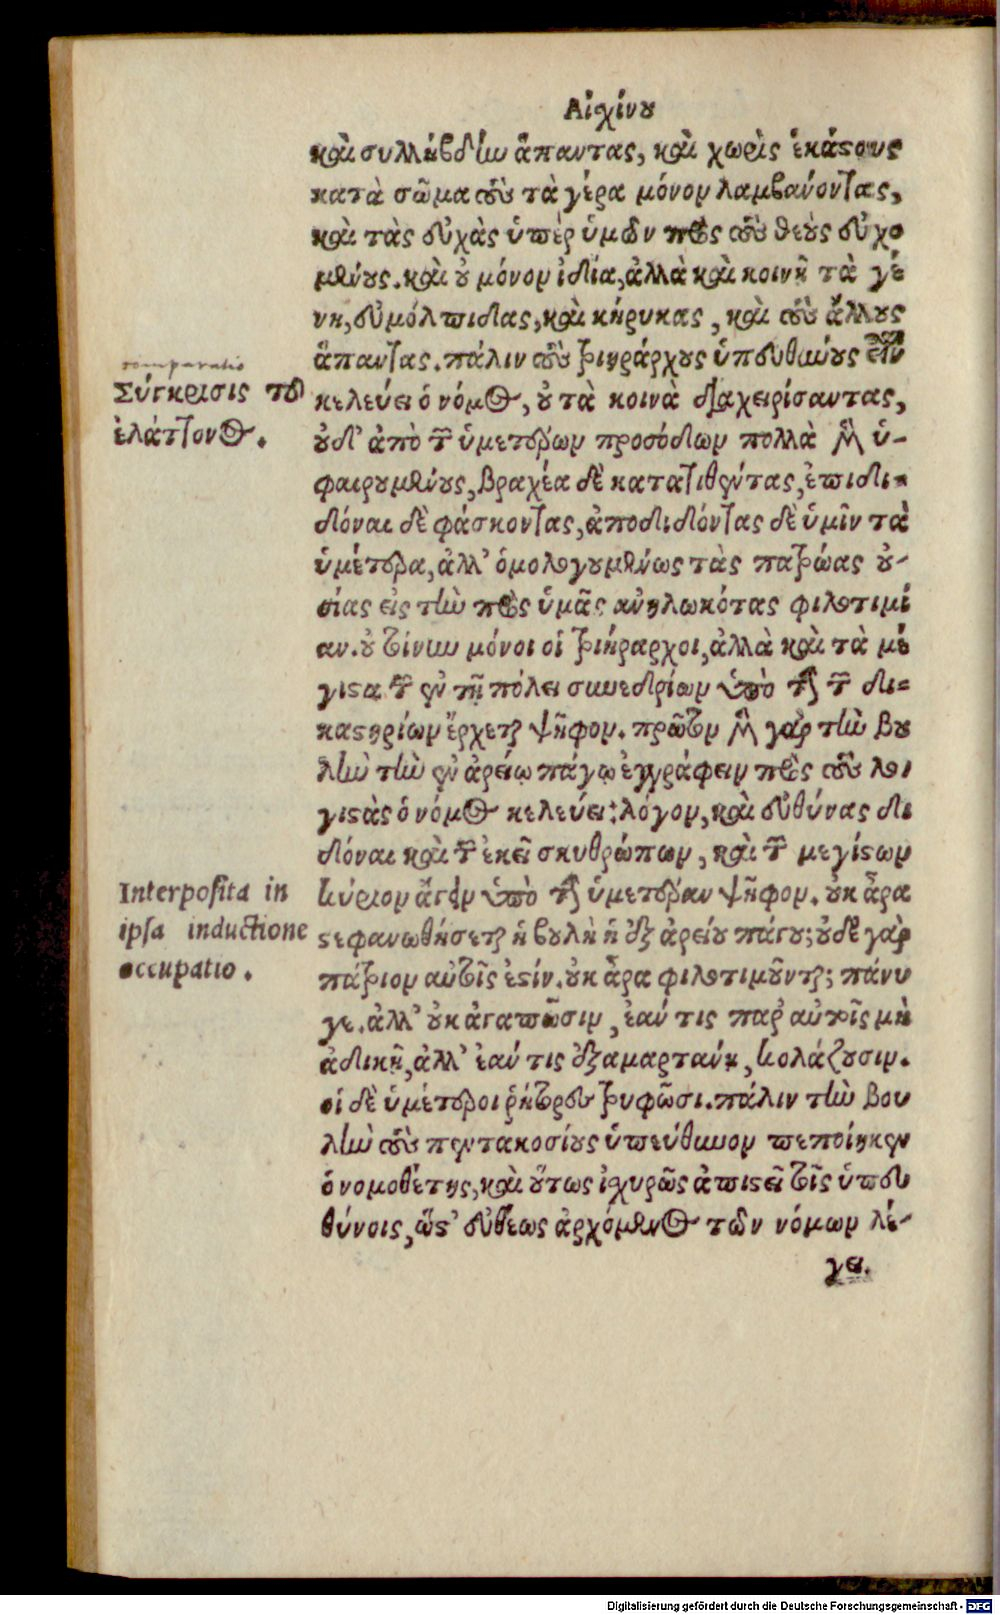 Αἰχίνου
καὶ συλλήβδην ἅπαντας, καὶ χωρὶς ἑκάστους
κατὰ σῶμα τοὺς τὰ γέρα μόνον λαμβάνοντας,
καὶ τὰς εὐχὰς ὑπὲρ ὑμῶν πρὸς τοὺς θεοὺς εὐχο
μένους. καὶ οὐ μόνον ἰδία, ἀλλὰ καὶ κοινῆ τὰ γέ
νη, εὐμόλπιδας, καὶ κήρυκας, καὶ τοὺς ἄλλους
ἅπαντας. πάλιν τοὺς τριηράρχους ὑπευθύνους εἶναι
comparatio
Σύγκρισις τοῦ
ἐλάττονος.
κελεύει ὁ νόμος, οὐ τὰ κοινὰ διαχειρίσαντας,
οὐδ' ἀπὸ τῶν ὑμετέρων προσόδων πολλὰ μὲν ὑ-
φαιρουμένους, βραχέα δὲ κατατιθέντας, ἐπιδι-
δόναι δὲ φάσκοντας, ἀποδιδόντας δὲ ὑμῖν τὰ
ὑμέτερα, ἀλλ' ὁμολογουμένως τὰς πατρώας οὐ-
σίας εἰς τὴν πρὸς ὑμᾶς ἀνηλωκότας φιλοτιμί
αν. οὐ τοίνυν μόνοι οἱ τριήραρχοι, ἀλλὰ καὶ τὰ μέ
γιστα τῶν ἐν τῇ πόλει συνεδρίων ὑπὸ τὴν τῶν δι-
καστηρίων ἔρχεται ψῆφον. πρῶτον μὲν γὰρ τὴν βου
λὴν τὴν ἐν ἀρείω πάγω ἐγγράφειν πρὸς τοὺς λο
γιστὰς ὁ νόμος κελεύει: λόγον, καὶ εὐθύνας δι
δόναι καὶ τῶν ἐκεῖ σκυθρώπων, καὶ τῶν μεγίστων
Interposita in
ipsa inductione
occupatio.
κύριον ἄγειν ὑπὸ τὴν ὑμετέραν ψῆφον. οὐκ ἄρα
στεφανωθήσεται ἡ βουλὴ ἡ ἐξ ἀρείου πάγου; οὐδὲ γὰρ
πάτριον αὐτοῖς ἐστίν. οὐκ ἄρα φιλοτιμοῦνται; πάνυ
γε. ἀλλ' οὐκ ἀγαπῶσιν, ἐάν τις παρ' αὐτοῖς μὴ
ἀδικῆ, ἀλλ' ἐάν τις ἐξαμαρτάνη, κολάζουσιν.
οἱ δὲ ὑμέτεροι ῥήτορες τρυφῶσι. πάλιν τὴν βου
λὴν τοὺς πεντακοσίους ὑπεύθυνον πεποίηκεν
ὁ νομοθέτης, καὶ οὕτως ἰχυρῶς ἀπιστεῖ τοῖς ὑπευ
θύνοις, ὥστ' εὐθέως ἀρχόμενος τῶν νόμων λέ-
γει.
Digitalisierung gefördert durch die Deutsche Forschungsgemeinschaft - DFG